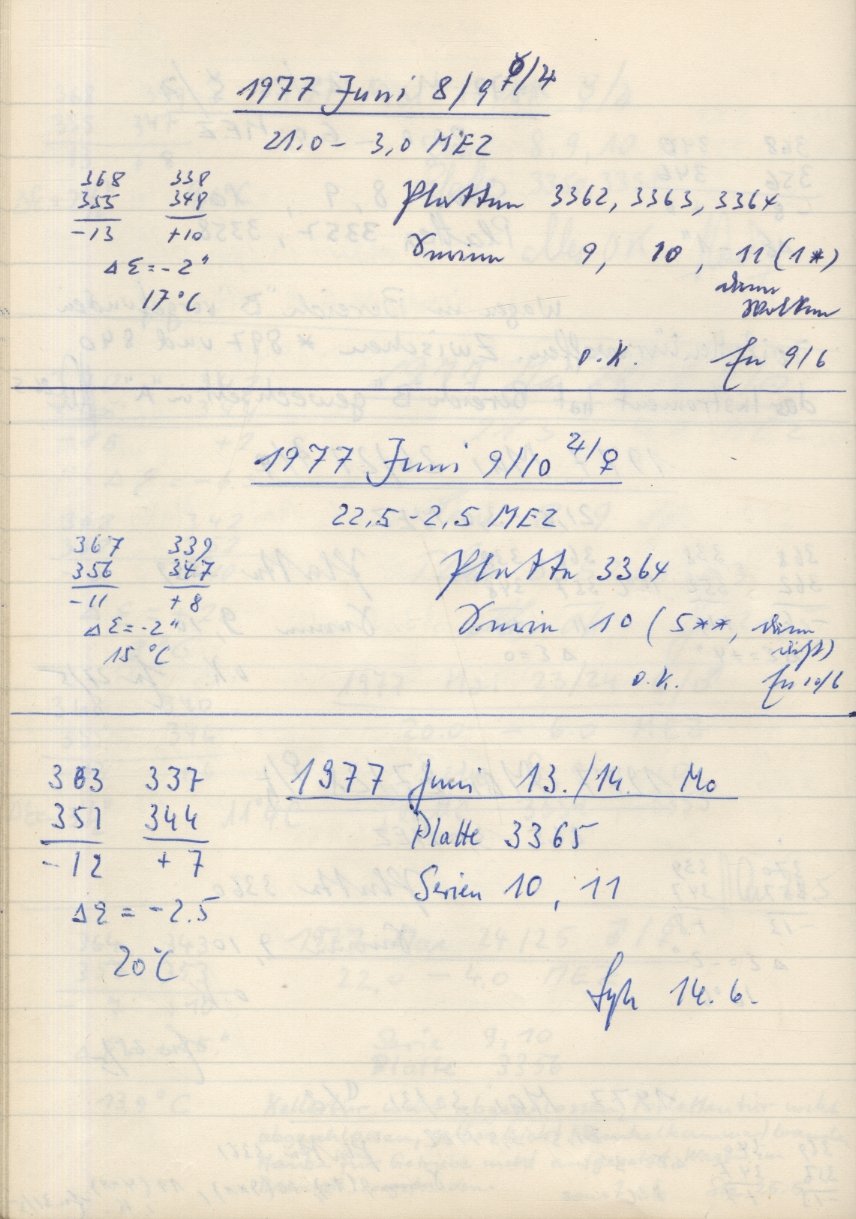 1977 Juni 8/9 ☿/♃
21,0 – 3,0 MEZ
368 338
355 348
-13 +10
Δε = -2"
17°C
Platten 3362, 3363, 3364
Serien 9, 10, 11 (1*)
dann
Wolken
o.k. 9/6
1977 Juni 9/10 ♃/♀
22,5 - 2,5 MEZ
367 339
356 347
-11 +8
Δε = -2"
15°C
Platte 3364
Serien 10 (5**, dann
nichts)
o.k. 10/6
363 337
351 344
-12 +7
Δε = -2.5
20°C
1977 Juni 13./14. Mo
Platte 3365
Serien 10, 11
14.6.